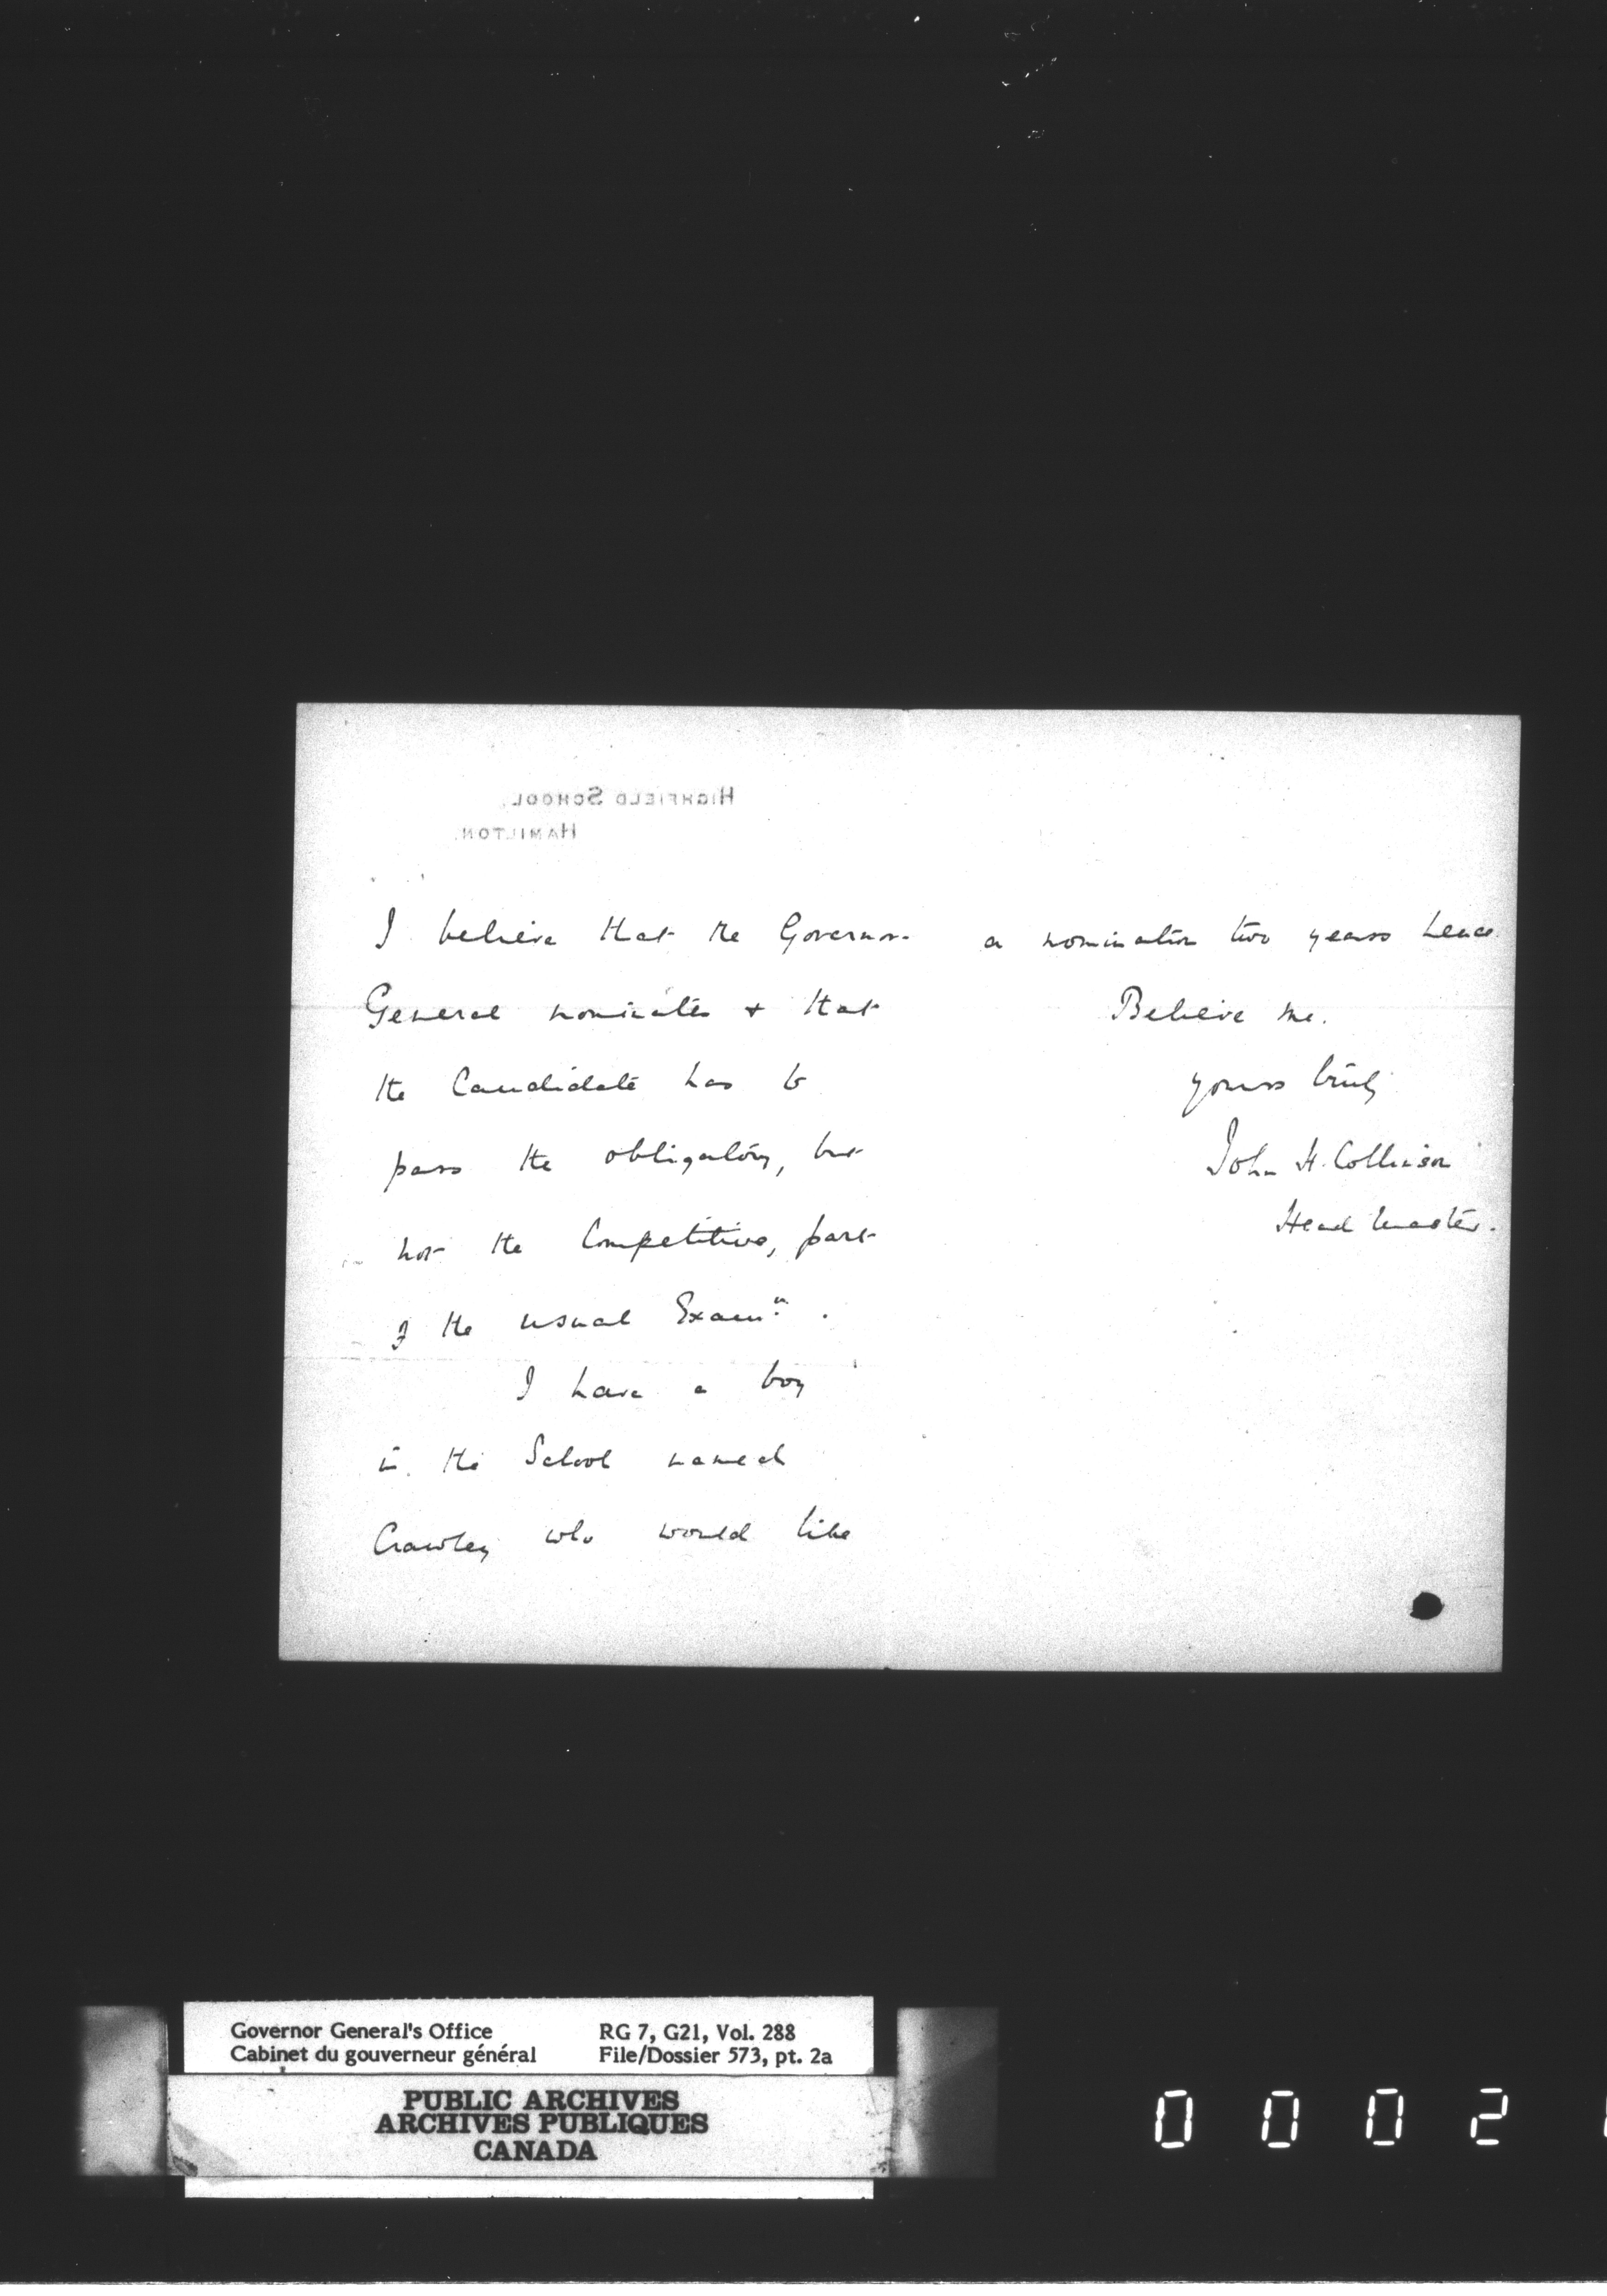 HIGHFIELD SCHOOL,
HAMILTON.
I believe that the Governor-
General nominates & that
the Candidate has to
pass the obligatory, but
not the Competitive, part
of the usual Examn.
I have a boy
in the School named
Crawley who would like
a nomination two years hence.
Believe me.
yours truly
John H. Collinson
Head Master.
Governor General's Office
Cabinet du gouverneur général
RG 7, G21, Vol. 288
File/Dossier 573, pt. 2a
PUBLIC ARCHIVES
ARCHIVES PUBLIQUES
CANADA
0002